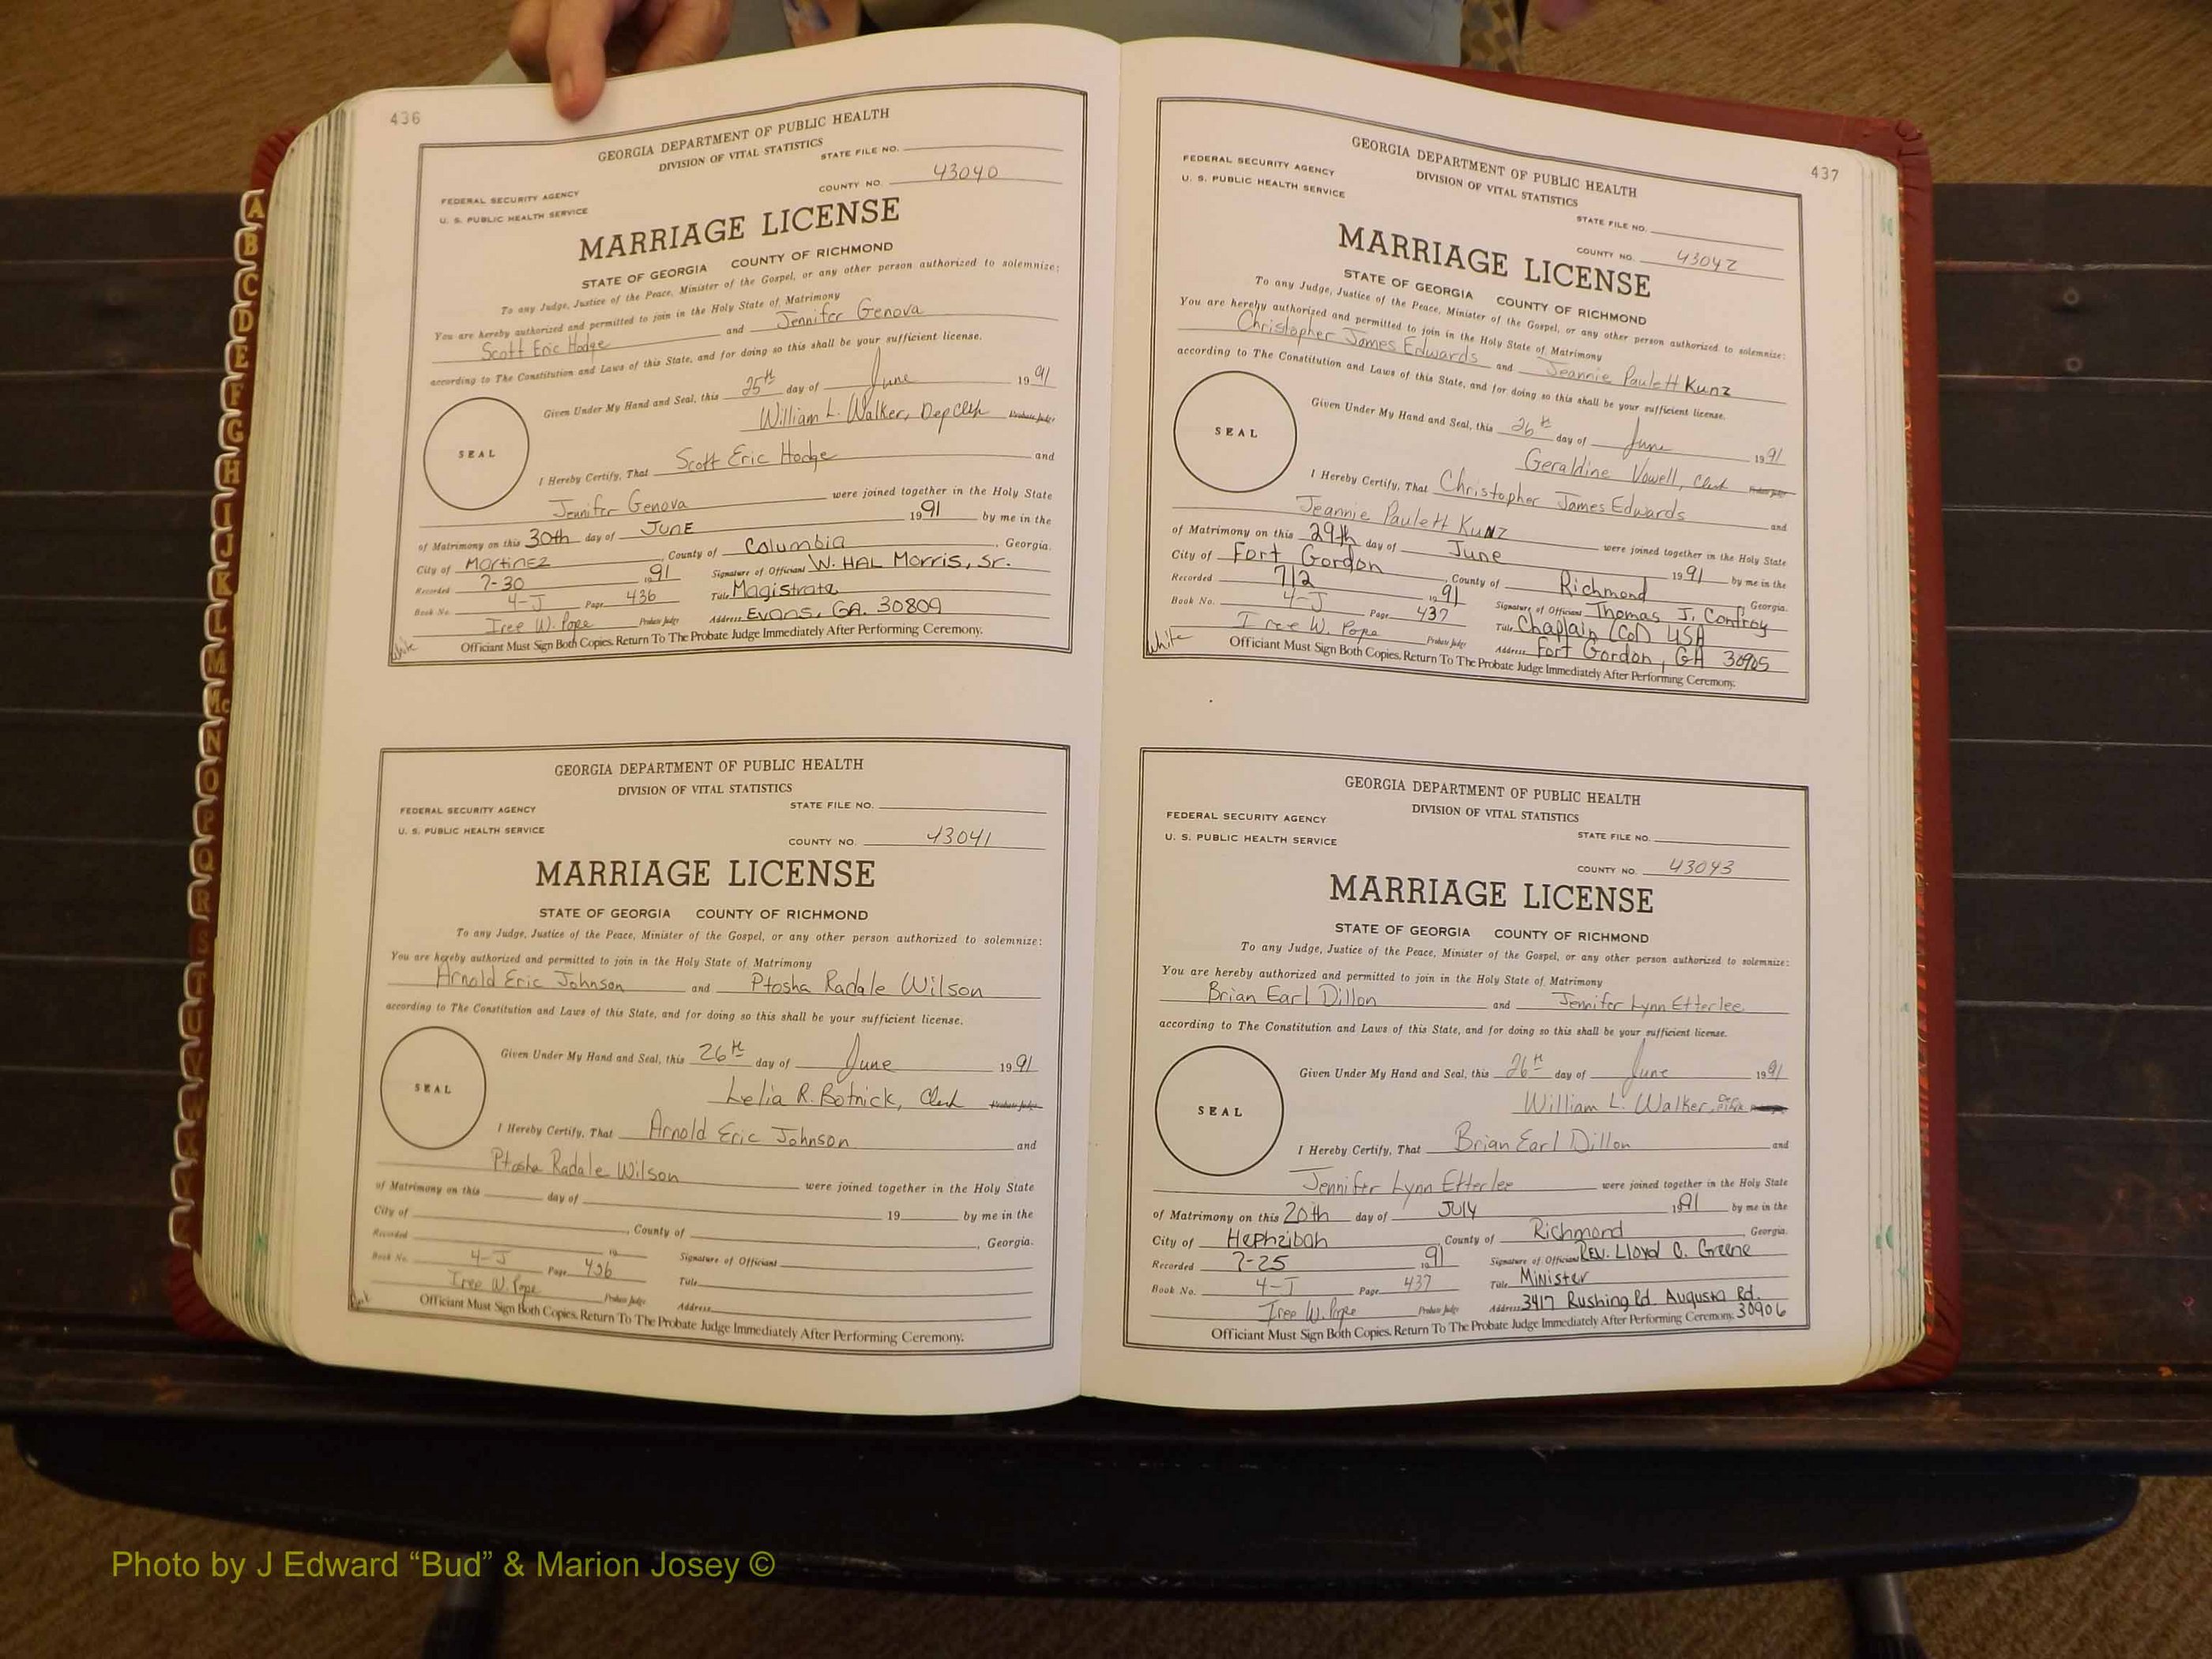 436
GEORGIA DEPARTMENT OF PUBLIC HEALTH
DIVISION OF VITAL STATISTICS
STATE FILE NO.
FEDERAL SECURITY AGENCY
COUNTY NO. 43040
U. S. PUBLIC HEALTH SERVICE
MARRIAGE LICENSE
STATE OF GEORGIA COUNTY OF RICHMOND
To any Judge, Justice of the Peace, Minister of the Gospel, or any other person authorized to solemnize:
You are hereby authorized and permitted to join in the Holy State of Matrimony
Scott Eric Hodge and Jennifer Genova
according to The Constitution and Laws of this State, and for doing so this shall be your sufficient license.
Given Under My Hand and Seal, this 25th day of June 1991
William L. Walker, Dep Clerk Probate Judge
SEAL
I Hereby Certify, That Scott Eric Hodge and
Jennifer Genova were joined together in the Holy State
of Matrimony on this 30th day of JUNE 1991 by me in the
City of Martinez, County of Columbia, Georgia.
Recorded 7-30 1991 Signature of Officiant W. HAL Morris, Sr.
Book No. 4-J Page 436 Title Magistrate
Iree W. Pope Probate Judge Address Evans, GA. 30809
White Officiant Must Sign Both Copies. Return To The Probate Judge Immediately After Performing Ceremony.
GEORGIA DEPARTMENT OF PUBLIC HEALTH
DIVISION OF VITAL STATISTICS
FEDERAL SECURITY AGENCY STATE FILE NO.
U. S. PUBLIC HEALTH SERVICE
COUNTY NO. 43041
MARRIAGE LICENSE
STATE OF GEORGIA COUNTY OF RICHMOND
To any Judge, Justice of the Peace, Minister of the Gospel, or any other person authorized to solemnize:
You are hereby authorized and permitted to join in the Holy State of Matrimony
Arnold Eric Johnson and Ptosha Radale Wilson
according to The Constitution and Laws of this State, and for doing so this shall be your sufficient license.
Given Under My Hand and Seal, this 26th day of June 1991
Lelia R. Botnick, Clerk Probate Judge
SEAL
I Hereby Certify, That Arnold Eric Johnson and
Ptosha Radale Wilson were joined together in the Holy State
of Matrimony on this day of 19 by me in the
City of , County of , Georgia.
Recorded 19 Signature of Officiant
Book No. 4-J Page 436 Title
Iree W. Pope Probate Judge Address
Officiant Must Sign Both Copies. Return To The Probate Judge Immediately After Performing Ceremony.
437
GEORGIA DEPARTMENT OF PUBLIC HEALTH
DIVISION OF VITAL STATISTICS
FEDERAL SECURITY AGENCY
U. S. PUBLIC HEALTH SERVICE
STATE FILE NO.
COUNTY NO. 43042
MARRIAGE LICENSE
STATE OF GEORGIA COUNTY OF RICHMOND
To any Judge, Justice of the Peace, Minister of the Gospel, or any other person authorized to solemnize:
You are hereby authorized and permitted to join in the Holy State of Matrimony
Christopher James Edwards and Jeannie Paulett Kunz
according to The Constitution and Laws of this State, and for doing so this shall be your sufficient license.
Given Under My Hand and Seal, this 26th day of June 1991
Geraldine Vowell, Clerk Probate Judge
SEAL
I Hereby Certify, That Christopher James Edwards
Jeannie Paulett Kunz and
were joined together in the Holy State
of Matrimony on this 29th day of June 1991 by me in the
City of Fort Gordon, County of Richmond Georgia.
Recorded 712 1991 Signature of Officiant Thomas J. Confroy
Book No. 4-J Page 437 Title Chaplain (Col) USA
Iree W. Pope Probate Judge Address Fort Gordon, GA 30905
White Officiant Must Sign Both Copies. Return To The Probate Judge Immediately After Performing Ceremony.
GEORGIA DEPARTMENT OF PUBLIC HEALTH
DIVISION OF VITAL STATISTICS
FEDERAL SECURITY AGENCY
U. S. PUBLIC HEALTH SERVICE
STATE FILE NO.
COUNTY NO. 43043
MARRIAGE LICENSE
STATE OF GEORGIA COUNTY OF RICHMOND
To any Judge, Justice of the Peace, Minister of the Gospel, or any other person authorized to solemnize:
You are hereby authorized and permitted to join in the Holy State of Matrimony
Brian Earl Dillon and Jennifer Lynn Etterlee
according to The Constitution and Laws of this State, and for doing so this shall be your sufficient license.
Given Under My Hand and Seal, this 26th day of June 1991
William L. Walker,
SEAL
I Hereby Certify, That Brian Earl Dillon and
Jennifer Lynn Etterlee were joined together in the Holy State
of Matrimony on this 20th day of July 1991 by me in the
City of Hephzibah, County of Richmond, Georgia.
Recorded 7-25 1991 Signature of Officiant REV. Lloyd C. Greene
Book No. 4-J Page 437 Title Minister
Iree W. Pope Probate Judge Address 3417 Rushing Rd. Augusta Rd.
Officiant Must Sign Both Copies. Return To The Probate Judge Immediately After Performing Ceremony. 30906
A
B
C
D
E
F
G
H
I
J
K
L
M
Mc
N
O
P
Q
R
S
T
Photo by J Edward “Bud” & Marion Josey ©